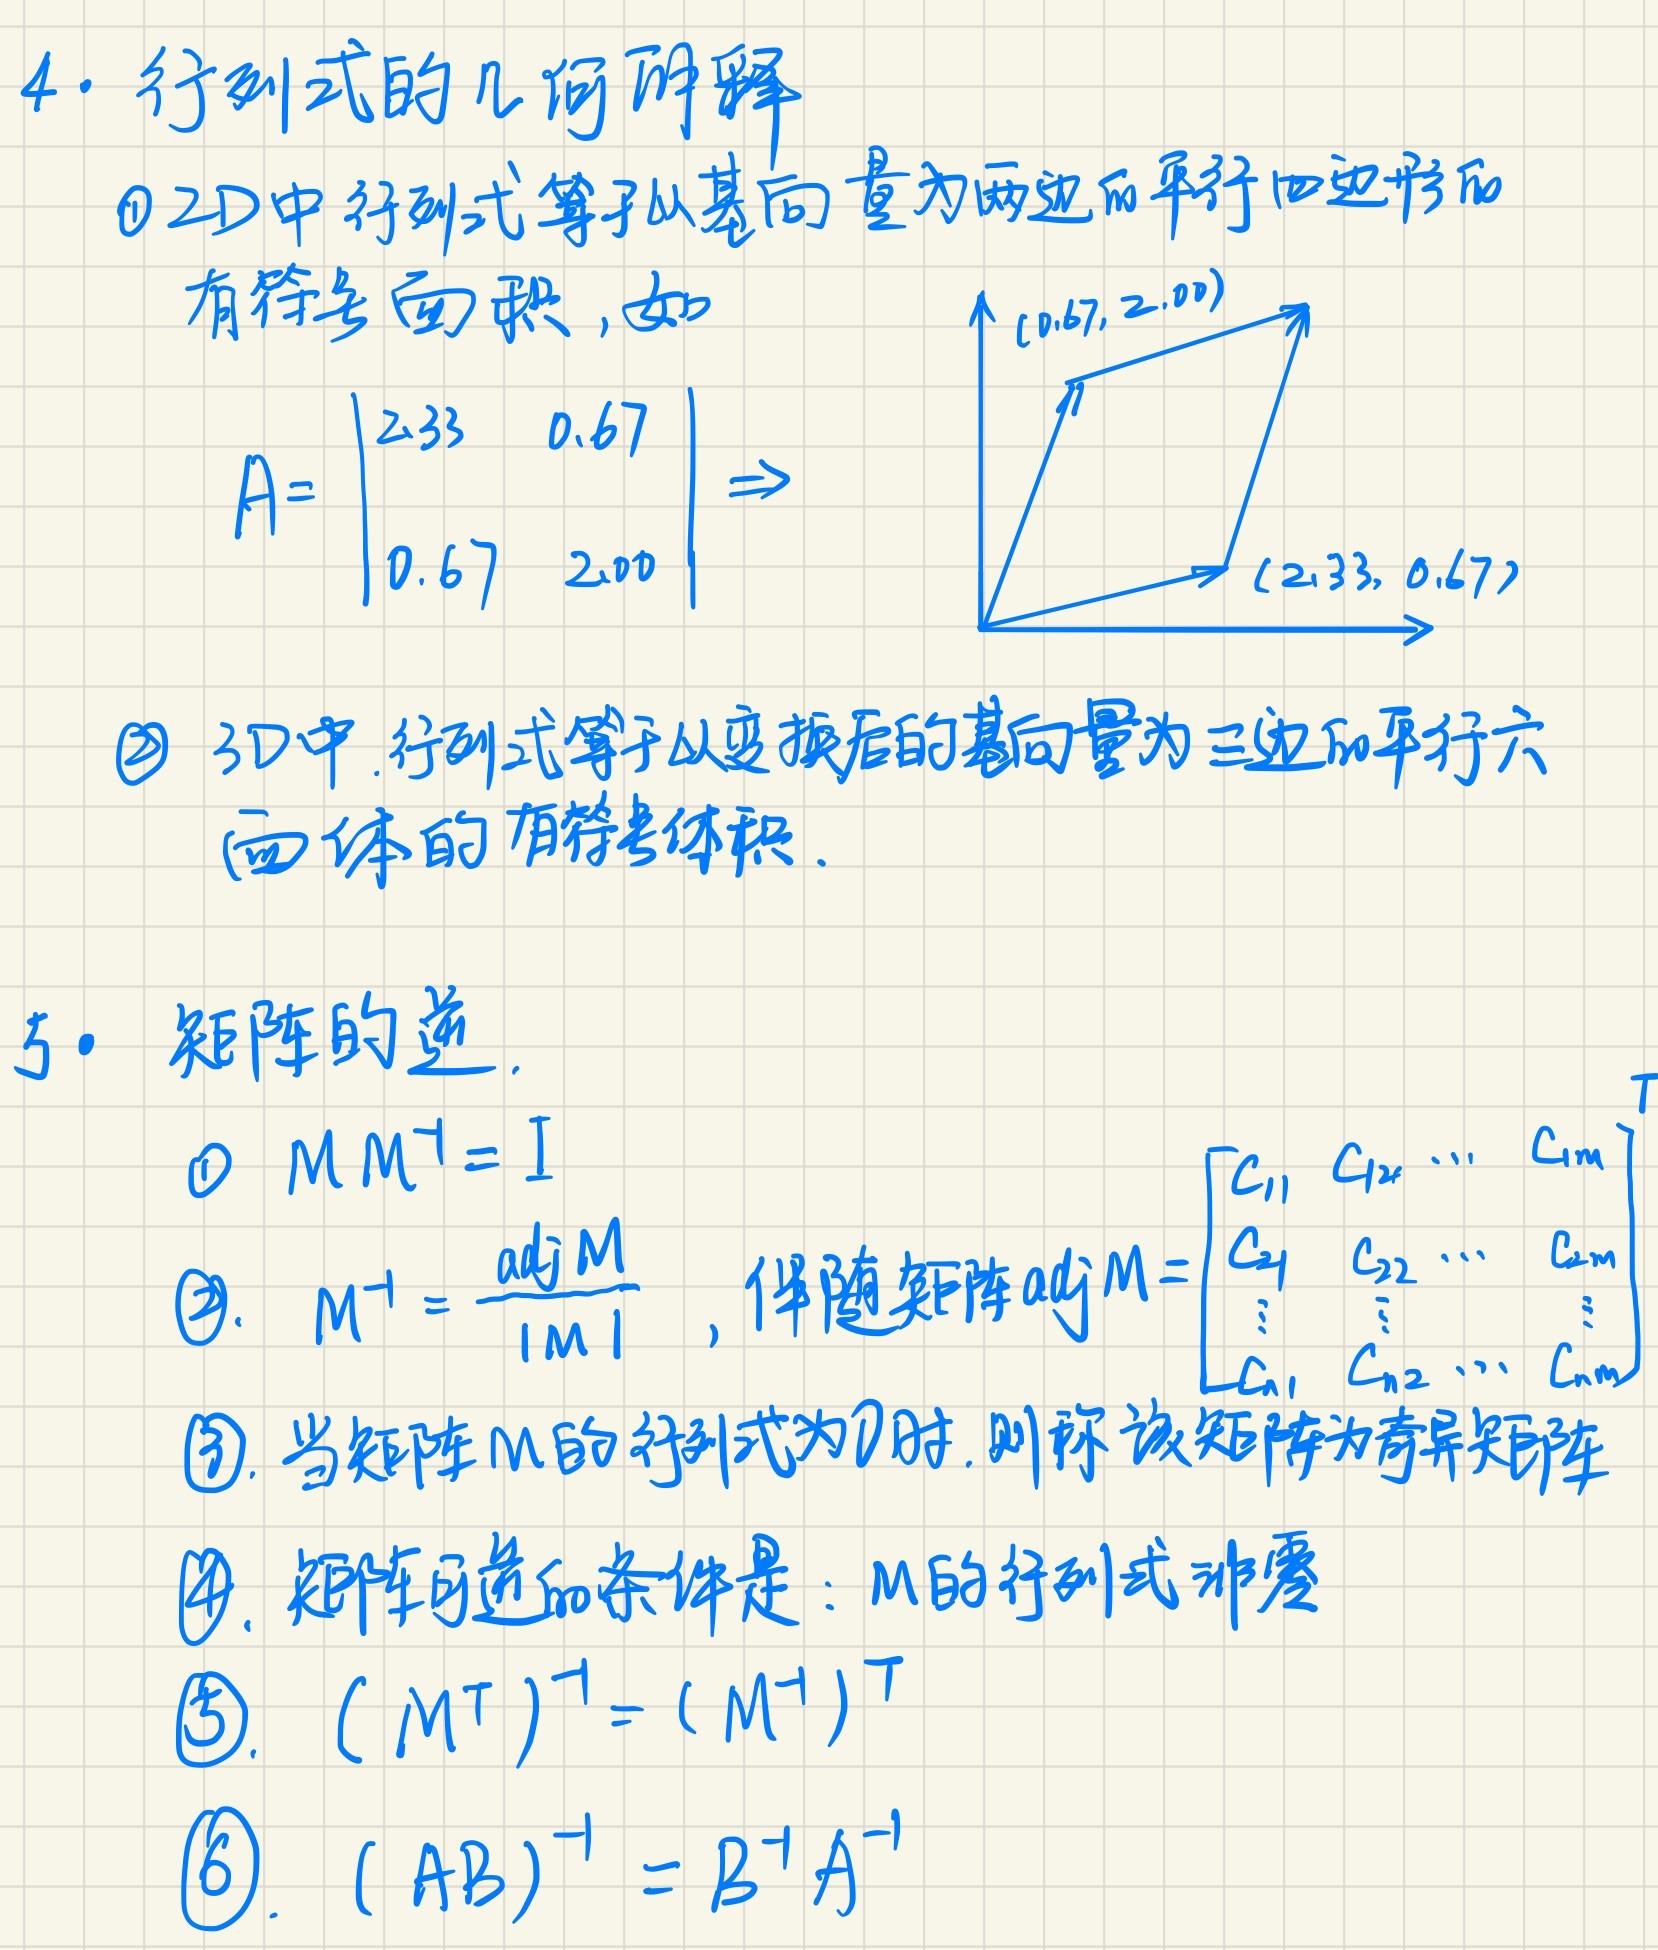 4. 行列式的几何解释
① 2D中行列式等于以基向量为两边的平行四边形的
有符号面积,如
(0.67, 2.00)
A= | 2.33 0.67 | ⇒
| 0.67 2.00 |
(2.33, 0.67)
② 3D中.行列式等于以变换后的基向量为三边的平行六
面体的有符号体积.
5. 矩阵的逆.
① M M⁻¹ = I
②. M⁻¹ = adj M / |M| , 伴随矩阵 adj M = [ C₁₁ C₁₂ ⋯ C₁ₘ
C₂₁ C₂₂ ⋯ C₂ₘ
⋮ ⋮ ⋮
Cₙ₁ Cₙ₂ ⋯ Cₙₘ ]ᵀ
③. 当矩阵M的行列式为0时.则称该矩阵为奇异矩阵
④. 矩阵可逆的条件是: M的行列式非零
⑤. (Mᵀ)⁻¹ = (M⁻¹)ᵀ
⑥. (AB)⁻¹ = B⁻¹A⁻¹